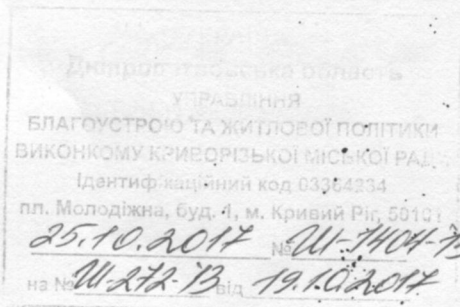 Дніпропетровська область
УПРАВЛІННЯ
БЛАГОУСТРОЮ ТА ЖИТЛОВОЇ ПОЛІТИКИ
ВИКОНКОМУ КРИВОРІЗЬКОЇ МІСЬКОЇ РАДИ
Ідентифікаційний код 03364234
пл. Молодіжна, буд. 1, м. Кривий Ріг, 50101
25.10.2017 № Ш-7404-ТЗ
на № Ш-272-ТЗ від 19.10.2017